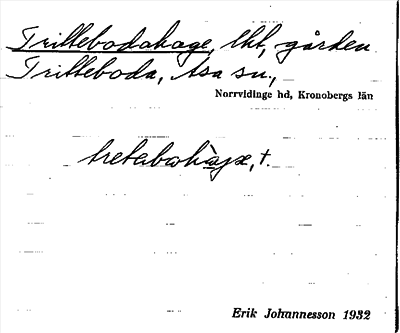 Trittebodahage, lht, gården
Tritteboda, Asa sn.,
Norrvidinge hd, Kronobergs län
Erik Johannesson 1932